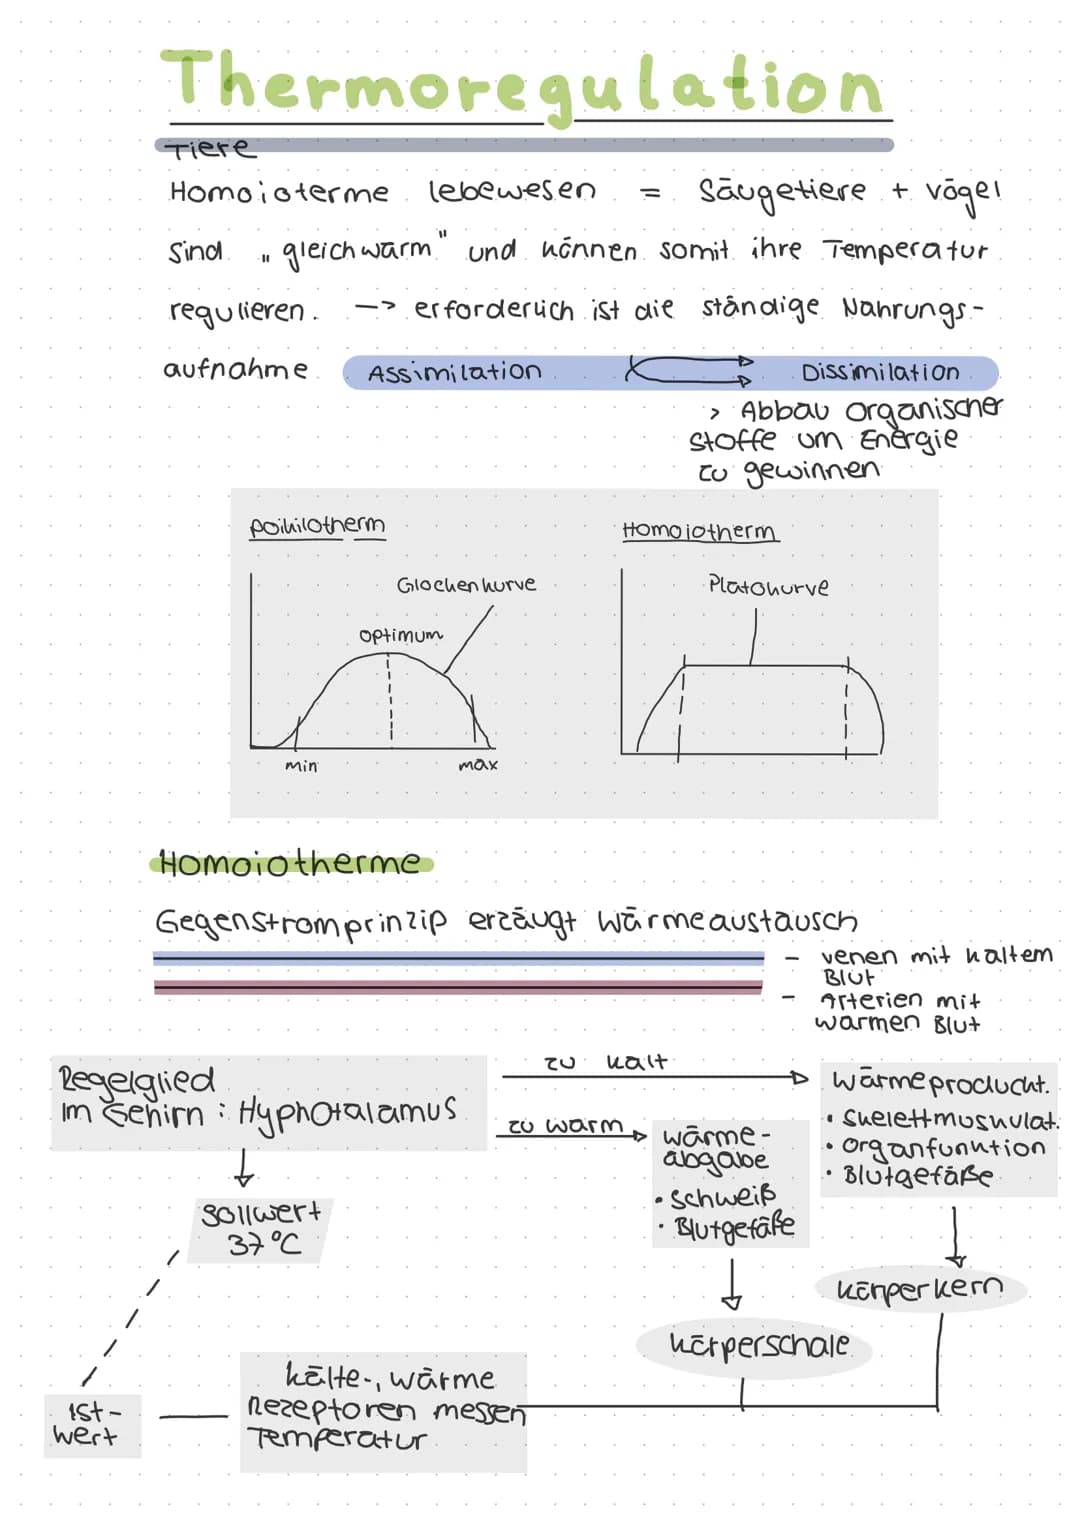 Thermoregulation
Tiere
Homoioterme lebewesen = Säugetiere + vögel
sind „gleichwarm" und können somit ihre Temperatur
regulieren. —> erforderlich ist die ständige Nahrungs-
aufnahme Assimilation Dissimilation
> Abbau organischer
Stoffe um Energie
zu gewinnen
poikilotherm
Homoiotherm
Glockenkurve
Platokurve
optimum
min
max
Homoiotherme
Gegenstromprinzip erzäugt wärmeaustausch
- venen mit kaltem
Blut
- Arterien mit
warmen Blut
Regelglied
im Gehirn : Hyphotalamus
zu kalt
zu warm
wärmeproduckt.
• Skelettmuskulat.
• organfunktion
• Blutgefäße
wärme-
abgabe
• schweiß
• Blutgefäße
sollwert
37°C
körperkern
körperschale
kälte-, wärme
rezeptoren messen
Temperatur
ist-
wert